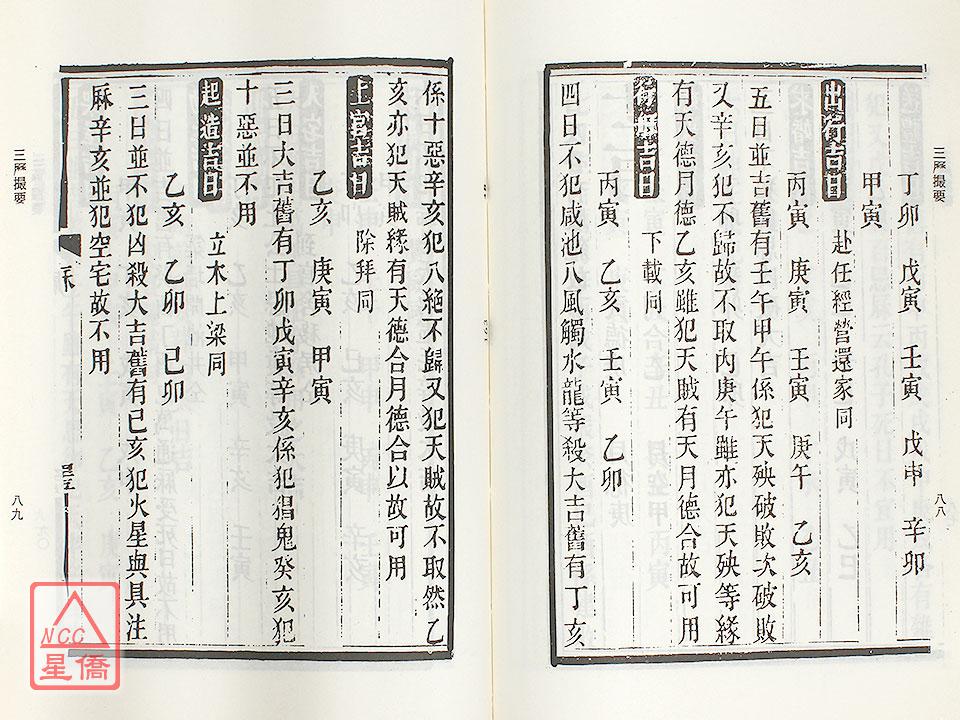 三厤撮要
八八
丁卯　戊寅　壬寅　戊申　辛卯
甲寅
出行吉日　赴任經營還家同
丙寅　庚寅　壬寅　庚午　乙亥
五日並吉舊有壬午甲午係犯天殃破敗次破敗
又辛亥犯不歸故不取內庚午雖亦犯天殃等緣
有天德月德乙亥雖犯天賊有天月德合故可用
行船吉日　下載同
丙寅　乙亥　壬寅　乙卯
四日不犯咸池八風觸水龍等殺大吉舊有丁亥
係十惡辛亥犯八絕不歸又犯天賊故不取然乙
亥亦犯天賊緣有天德合月德合以故可用
上官吉日　除拜同
乙亥　庚寅　甲寅
三日大吉舊有丁卯戊寅辛亥係犯猖鬼癸亥犯
十惡並不用
起造吉日　立木上梁同
乙亥　乙卯　己卯
三日並不犯凶殺大吉舊有己亥犯火星與具注
厤辛亥並犯空宅故不用
三厤撮要
八九
NCC
星僑